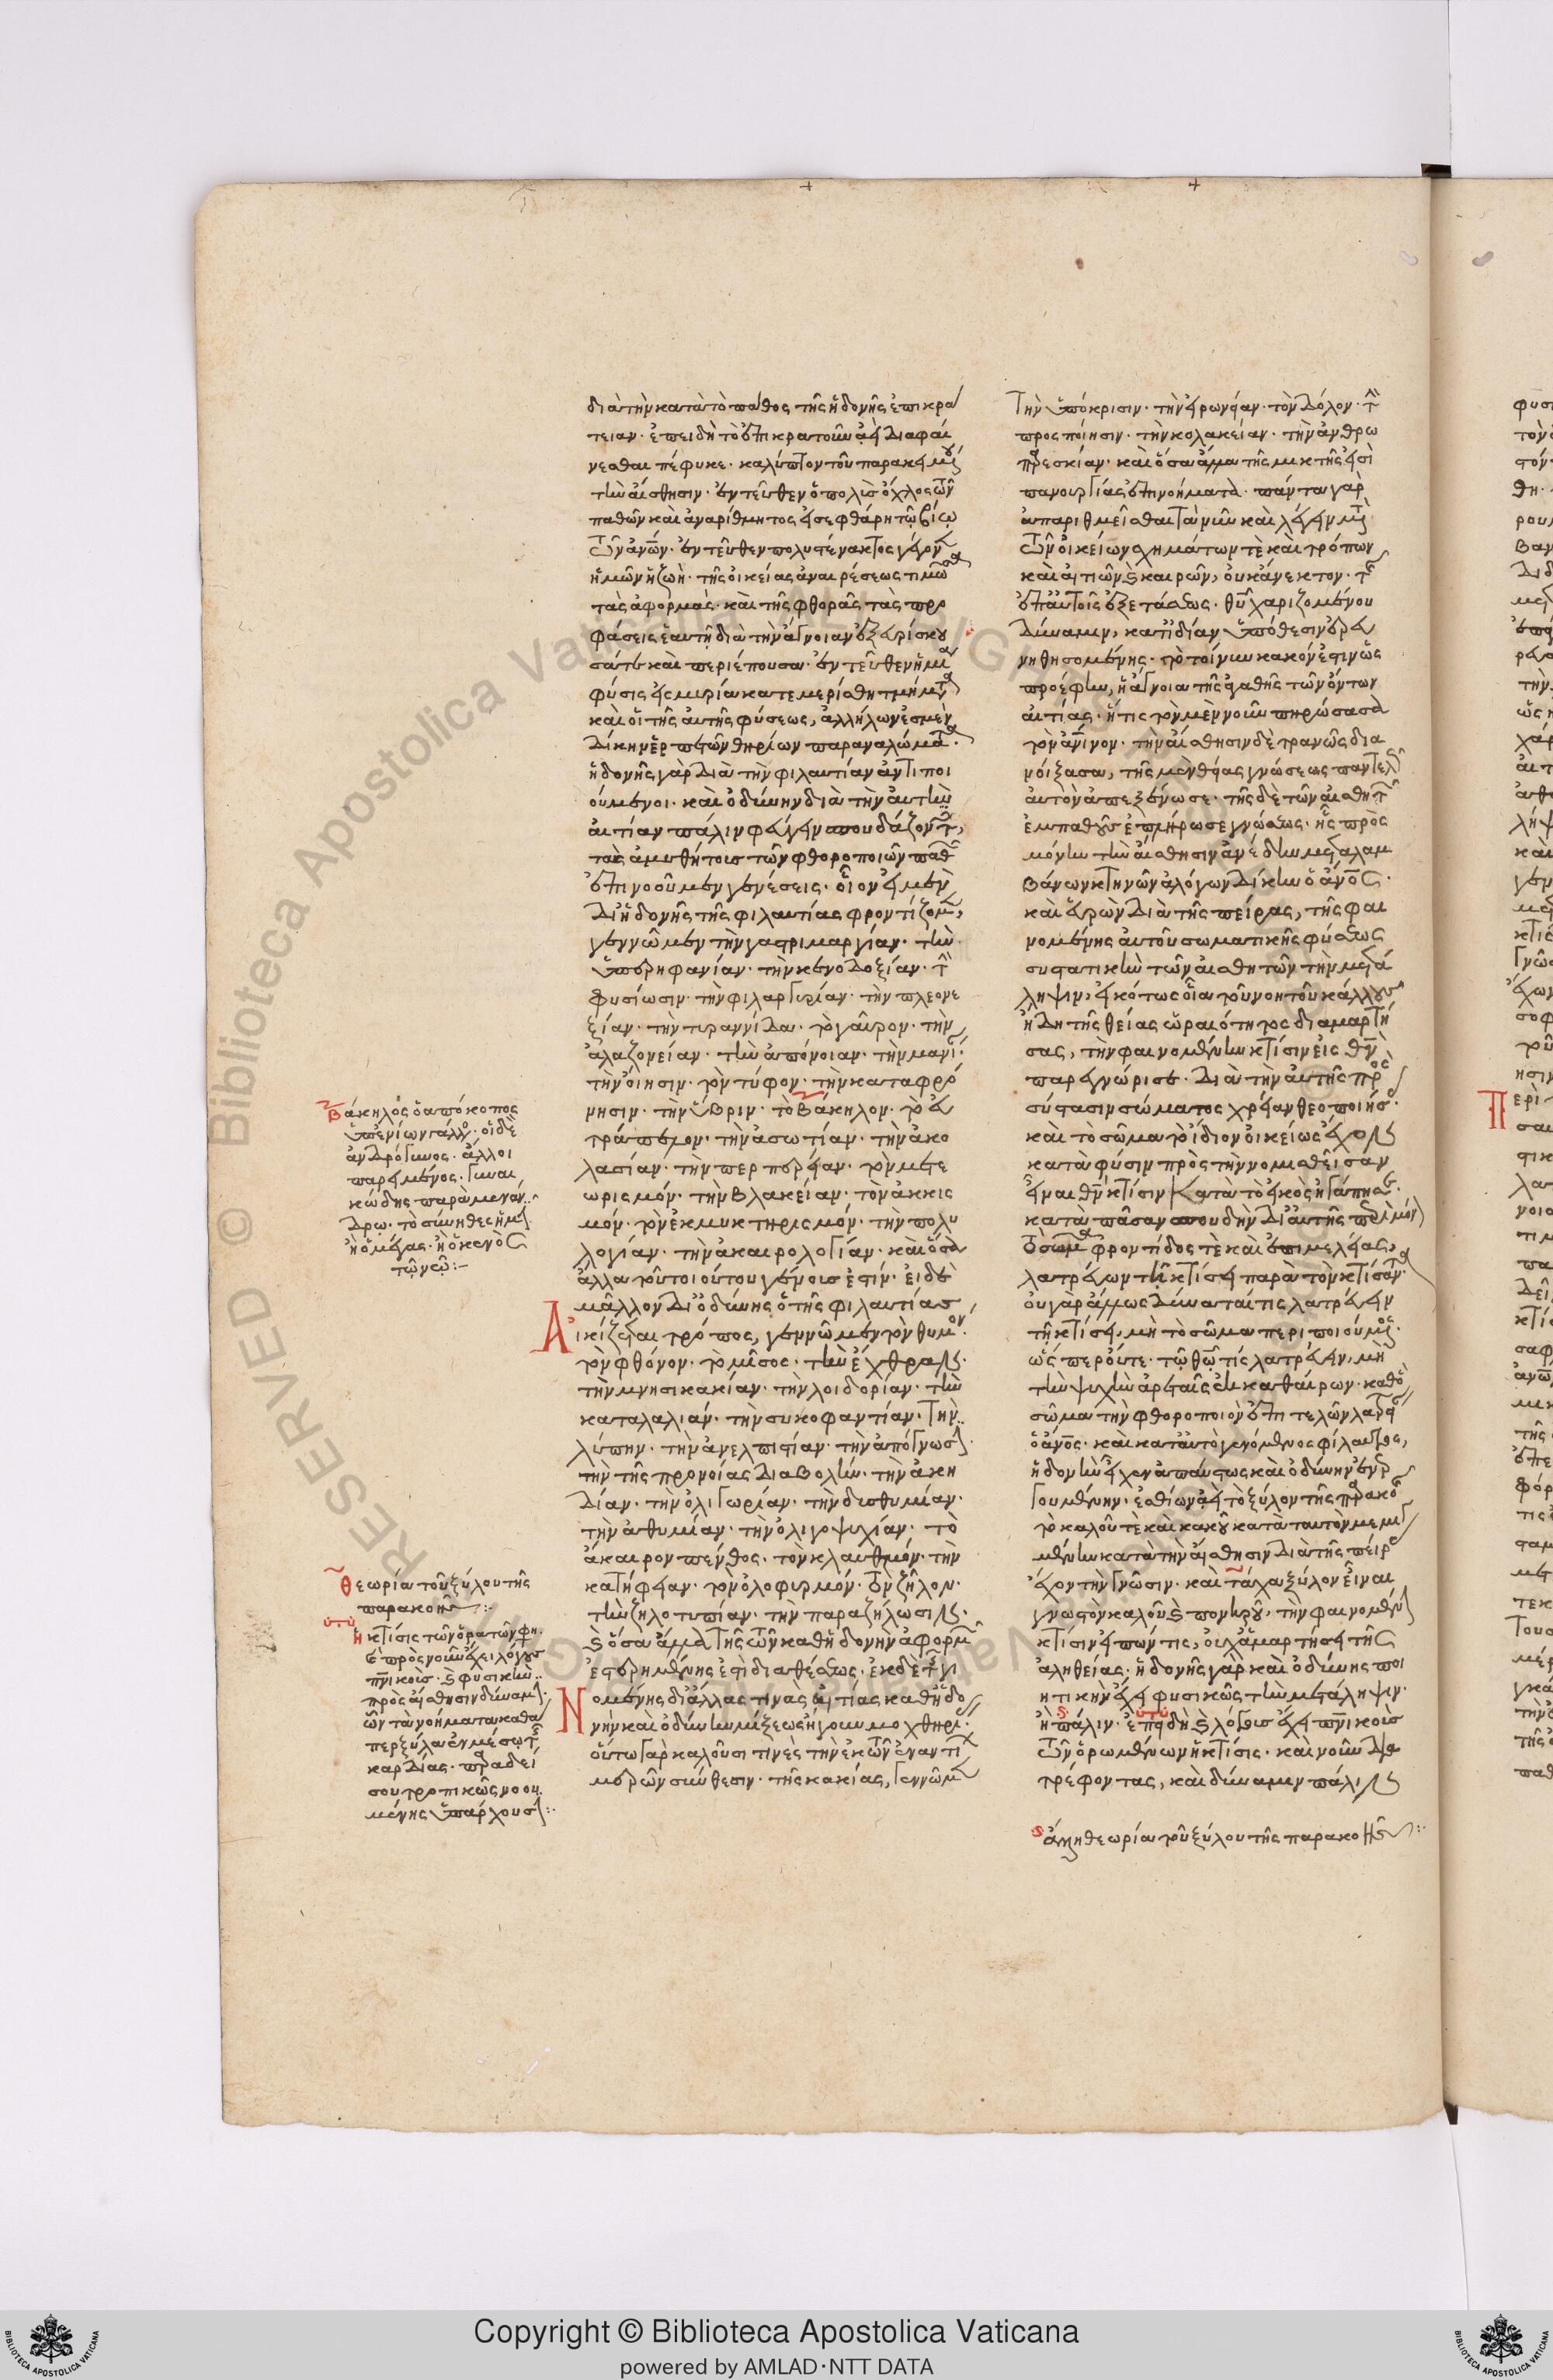 διὰ τὴν κατὰ τὸ πάθος τῆς ἡδονῆς ἐπικρά
τειαν· ἐπειδὴ τὸ ἐπικρατοῦν ἀεὶ διαφαί
νεσθαι πέφυκε· καλύπτον τοῦ παρακειμένου
τὴν αἴσθησιν· ἐντεῦθεν ὁ πολὺς ὄχλος τῶν
παθῶν καὶ ἀναρίθμητος εἰσεφθάρη τῷ βίῳ
τῶν ἀνων· ἐντεῦθεν πολυστένακτος γέγονεν
ἡμῶν ἡ ζωὴ· τῆς οἰκείας ἀναιρέσεως τιμῶσα
τὰς ἀφορμάς· καὶ τῆς φθορᾶς τὰς προ
φάσεις ἑαυτῇ διὰ τὴν ἄγνοιαν ἐξευρίσκου
σά τε καὶ περιέπουσα· ἐντεῦθεν ἡ μία
φύσις εἰς μυρία κατεμερίσθη τμήματα
καὶ οἱ τῆς αὐτῆς φύσεως, ἀλλήλων ἐσμὲν
δίκην ἑρπετῶν θηρίων παραναλώματα·
ἡδονῆς γὰρ διὰ τὴν φιλαυτίαν ἀντιποι
ούμενοι· καὶ ὀδύνην διὰ τὴν αὐτὴν
αἰτίαν πάλιν φεύγειν σπουδάζοντες,
τὰς ἀμυθήτους τῶν φθοροποιῶν παθῶν
ἐπινοοῦμεν γενέσεις· οἷον εἰ μὲν
δι' ἡδονῆς τῆς φιλαυτίας φροντίζομεν,
γεννῶμεν τὴν γαστριμαργίαν· τὴν
ὑπερηφανίαν· τὴν κενοδοξίαν· τὴν
φυσίωσιν· τὴν φιλαργυρίαν· τὴν πλεονε
ξίαν· τὴν τυραννίδα· τὸ γαῦρον· τὴν
ἀλαζονείαν· τὴν ἀπόνοιαν· τὴν μανίαν·
τὴν οἴησιν· τὸν τύφον· τὴν καταφρό
νησιν· τὴν ὕβριν· τὸ βάκηλον· τὸ εὐ
τράπελον· τὴν ἀσωτίαν· τὴν ἀκο
λασίαν· τὴν περπερείαν· τὸν μετε
ωρισμόν· τὴν βλακείαν· τὸν ἀκκισ
μόν· τὸν ἐκμυκτηρισμόν· τὴν πολυ
λογίαν· τὴν ἀκαιρολογίαν· καὶ ὅσα
ἄλλα τοῦ τοιούτου γένους ἐστίν· εἰ δὲ
μᾶλλον δι' ὀδύνης ὁ τῆς φιλαυτίας
Αἰκίζεται τρόπος, γεννῶμεν τὸν θυμόν·
τὸν φθόνον· τὸ μῖσος· τὴν ἔχθραν·
τὴν μνησικακίαν· τὴν λοιδορίαν· τὴν
καταλαλιάν· τὴν συκοφαντίαν· τὴν
λύπην· τὴν ἀνελπιστίαν· τὴν ἀπόγνωσιν·
τὴν τῆς προνοίας διαβολήν· τὴν ἀκη
δίαν· τὴν ὀλιγωρίαν· τὴν δυσθυμίαν·
τὴν ἀθυμίαν· τὴν ὀλιγοψυχίαν· τὸ
ἄκαιρον πένθος· τὸν κλαυθμόν· τὴν
κατήφειαν· τὸν ὀλοφυρμόν· τὸν ζῆλον·
τὴν ζηλοτυπίαν· τὴν παραζήλωσιν·
καὶ ὅσα ἄλλα τῆς τῶν καθ' ἡδονὴν ἀφορμῶν
ἐστερημένης ἐστὶ διαθέσεως· ἐκ δὲ τῆς γι
Νομένης δι' ἄλλας τινὰς αἰτίας καθ' ἡδο
νὴν καὶ ὀδύνην μίξεως ἤγουν μοχθηρίας·
οὕτω γὰρ καλοῦσί τινες τὴν ἐκ τῶν ἐναντίων
μερῶν σύνθεσιν· τῆς κακίας, γεννῶμεν
Τὴν ὑπόκρισιν· τὴν εἰρωνείαν· τὸν δόλον· τὴν
προσποίησιν· τὴν κολακείαν· τὴν ἀνθρω
παρεσκίαν· καὶ ὅσα ἄλλα τῆς μικτῆς εἰσὶ
πανουργίας ἐπινοήματα· πάντα γὰρ
ἀπαριθμεῖσθαι τὰ νῦν καὶ λέγειν μετὰ
τῶν οἰκείων σχημάτων τὲ καὶ τρόπων
καὶ αἰτιῶν καὶ καιρῶν, οὐκ ἀνεκτον· τῆς
ἐπ' αὐτοῖς ἐξετάσεως· θυ χαριζομένου
δύναμιν, κατ' ἰδίαν ὑπόθεσιν ἐρευ
νηθησομένης· τὸ τοίνυν κακόν ἐστιν ὡς
προέφην, ἡ ἄγνοια τῆς ἀγαθῆς τῶν ὄντων
αἰτίας· ἥτις τὸν μὲν νοῦν πηρώσασα
τὸν ἀνινον· τὴν αἴσθησιν δὲ τρανῶς δια
νοίξασα, τῆς μὲν θείας γνώσεως παντελῶς
αὐτὸν ἀπεξένωσε· τῆς δὲ τῶν αἰσθητῶν
ἐμπαθοῦς ἐπλήρωσε γνώσεως· ἧς πρὸς
μόνην τὴν αἴσθησιν ἀνέδην μεταλαμ
βάνων κτηνῶν ἀλόγων δίκην ὁ ἄνος·
καὶ εὑρὼν διὰ τῆς πείρας, τῆς φαι
νομένης αὐτοῦ σωματικῆς φύσεως
συστατικὴν τῶν αἰσθητῶν τὴν μετά
ληψιν, εἰκότως οἷα τοῦ νοητοῦ κάλλους
ἤδη τῆς θείας ὡραιότητος διαμαρτή
σας, τὴν φαινομένην κτίσιν εἰς θν
παρεγνώρισε· διὰ τὴν αὐτῆς πρὸς
σύστασιν σώματος χρείαν θεοποιήσας·
καὶ τὸ σῶμα τὸ ἴδιον οἰκείως ἔχον
κατὰ φύσιν πρὸς τὴν νομισθεῖσαν
εἶναι θν κτίσιν κατὰ τὸ εἰκὸς ἠγάπησε·
κατὰ πᾶσαν σπουδὴν δι' αὐτῆς περὶ μόνην
τοῦ σώματος φροντίδος τὲ καὶ ἐπιμελείας,
λατρεύων τῇ κτίσει παρὰ τὸν κτίσαντα·
οὐ γὰρ ἄλλως δύναταί τις λατρεύειν
τῇ κτίσει, μὴ τὸ σῶμα περιποιούμενος·
ὥσπερ οὔτε· τῷ θῷ τίς λατρεύειν, μὴ
τὴν ψυχὴν ἀρεταῖς ἐκκαθαίρων· καθ' ὃ
σῶμα τὴν φθοροποιὸν ἐπιτελῶν λατρείαν
ὁ ἄνος· καὶ κατ' αὐτὸ γενόμενος φίλαυτος,
ἡδονὴν εἶχεν ἀπαύστως καὶ ὀδύνην ἐνερ
γουμένην· ἐσθίων ἀεὶ τὸ ξύλον τῆς παρακοῆς
τὸ καλοῦ τὲ καὶ κακοῦ κατὰ ταυτὸν μεμιγ
μένην κατὰ τὴν αἴσθησιν διὰ τῆς πείρας
ἔχον τὴν γνῶσιν· καὶ τάχα ξύλον εἶναι
γνωστὸν καλοῦ καὶ πονηροῦ, τὴν φαινομένην
κτίσιν εἰπών τις, οὐχ ἁμαρτήσει τῆς
ἀληθείας· ἡδονῆς γὰρ καὶ ὀδύνης ποι
ητικὴν ἔχει φυσικῶς τὴν μετάληψιν·
ἢ πάλιν· ἐπειδὴ καὶ λόγους ἔχει πνικοὺς
τῶν ὁρωμένων ἡ κτίσις· καὶ νοῦν δια
τρέφοντας, καὶ δύναμιν πάλιν
ἄλλη θεωρία τοῦ ξύλου τῆς παρακοῆς:
Βάκηλος ὁ ἀπόκοπος
ὑπ' ἐνίων γάλλος· οἱ δὲ
ἀνδρόγυνος· ἄλλοι
παρειμένος· γυναι
κώδης παρὰ μενάν
δρω· τὸ σύνηθες ἡμῖν
ἢ ὁ μέγας· ἢ ὁ κενὸς
τῷ νῷ:
Θεωρία τοῦ ξύλου τῆς
παρακοῆς:
ἡ κτίσις τῶν ὁρατῶν φη
σι πρὸς νοῦν ἔχει λόγους
πνικοὺς· καὶ φυσικὴν
πρὸς αἴσθησιν δύναμιν·
ὧν τὰ νοήματα καθά
περ ξύλα ἐν μέσῳ τῆς
καρδίας· παραδεί
σου τροπικῶς νοου
μένης ὑπάρχουσιν: